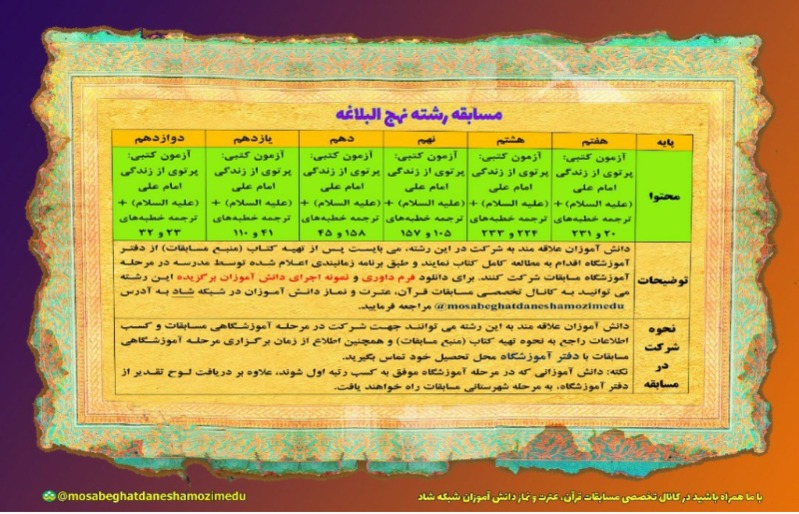 مسابقه رشته نهج البلاغه
پایه هفتم هشتم نهم دهم یازدهم دوازدهم
محتوا
آزمون کتبی: آزمون کتبی: آزمون کتبی: آزمون کتبی: آزمون کتبی: آزمون کتبی:
پرتوی از زندگی پرتوی از زندگی پرتوی از زندگی پرتوی از زندگی پرتوی از زندگی پرتوی از زندگی
امام علی امام علی امام علی امام علی امام علی امام علی
(علیه السلام) + (علیه السلام) + (علیه السلام) + (علیه السلام) + (علیه السلام) + (علیه السلام) +
ترجمه خطبه‌های ترجمه خطبه‌های ترجمه خطبه‌های ترجمه خطبه‌های ترجمه خطبه‌های ترجمه خطبه‌های
۲۰ و ۲۳۱ ۲۲۴ و ۲۳۳ ۱۰۵ و ۱۵۷ ۱۵۸ و ۴۵ ۴۱ و ۱۱۰ ۲۳ و ۳۲
توضیحات
دانش آموزان علاقه مند به شرکت در این رشته، می بایست پس از تهیه کتاب (منبع مسابقات) از دفتر
آموزشگاه اقدام به مطالعه کامل کتاب نمایند و طبق برنامه زمانبندی اعلام شده توسط مدرسه در مرحله
آموزشگاه مسابقات شرکت کنند. برای دانلود فرم داوری و نمونه اجرای دانش آموزان برگزیده این رشته
می توانید به کانال تخصصی مسابقات قرآن، عترت و نماز دانش آموزان در شبکه شاد به آدرس
@mosabeghatdaneshamozimedu مراجعه فرمایید.
نحوه
شرکت
در
مسابقه
دانش آموزان علاقه مند به این رشته می توانند جهت شرکت در مرحله آموزشگاهی مسابقات و کسب
اطلاعات راجع به نحوه تهیه کتاب (منبع مسابقات) و همچنین اطلاع از زمان برگزاری مرحله آموزشگاهی
مسابقات با دفتر آموزشگاه محل تحصیل خود تماس بگیرید.
نکته: دانش آموزانی که در مرحله آموزشگاه موفق به کسب رتبه اول شوند، علاوه بر دریافت لوح تقدیر از
دفتر آموزشگاه، به مرحله شهرستانی مسابقات راه خواهند یافت.
با ما همراه باشید در کانال تخصصی مسابقات قرآن، عترت و نماز دانش آموزان شبکه شاد
@mosabeghatdaneshamozimedu